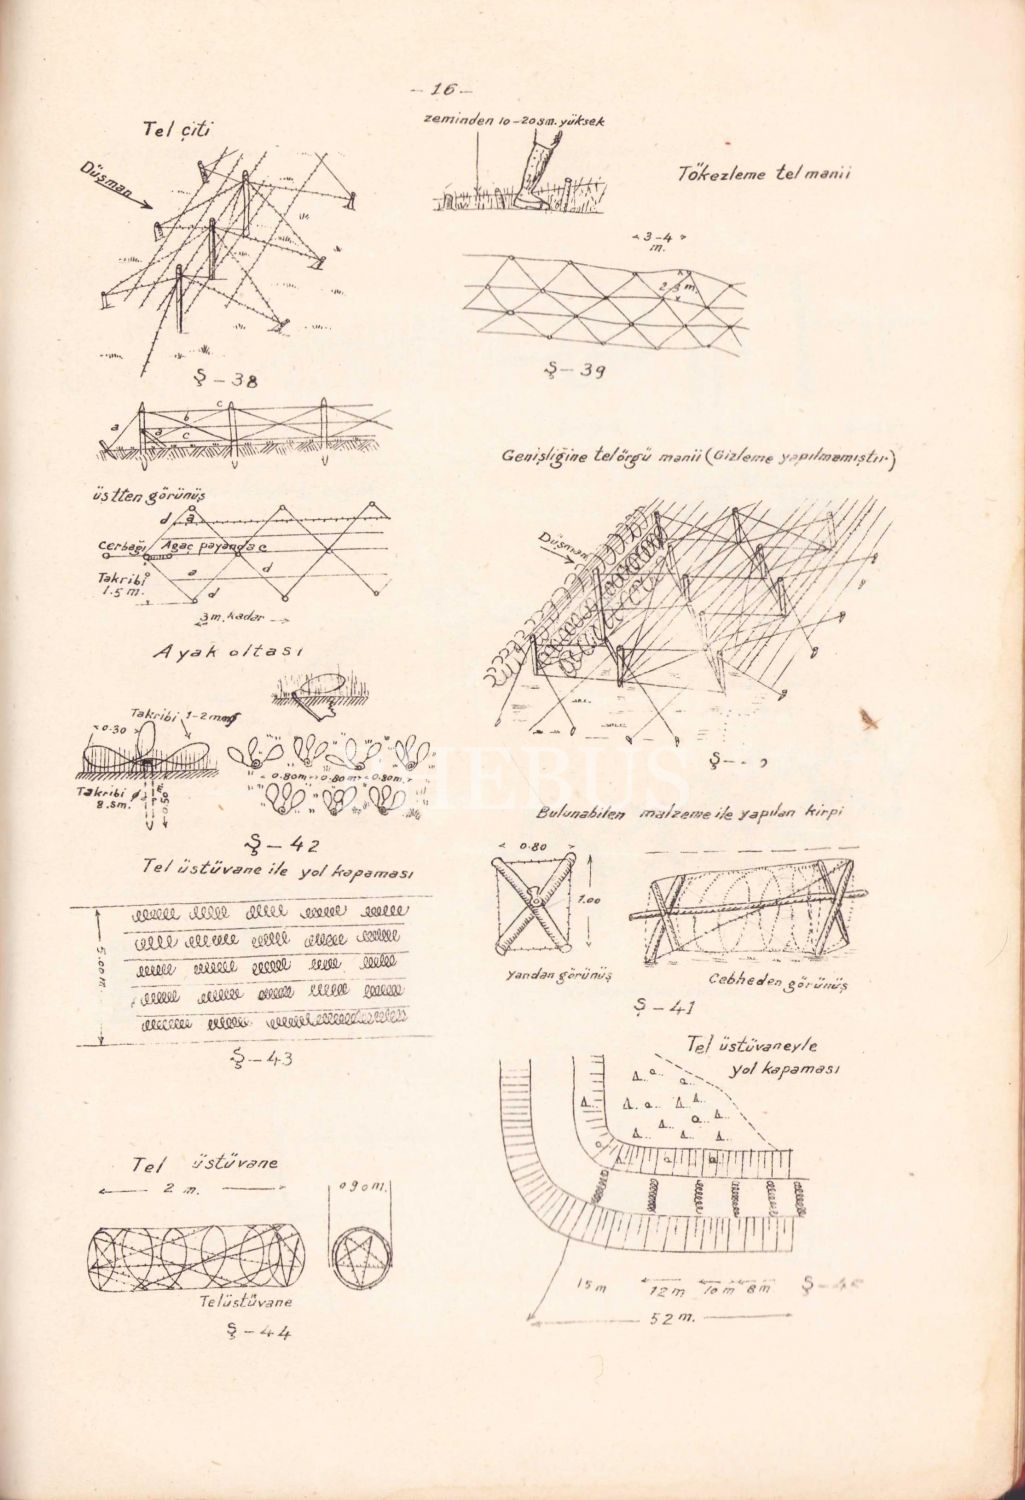 - 16 -
Tel çiti
Düşman
Ş - 38
zeminden 10-20 sm. yüksek
Tökezleme tel manii
3-4
m.
2 3 m.
Ş - 39
a
b
c
a
c
üstten görünüş
d
a
Ağaç payanda
c
Takribi
1.5 m.
a
d
d
3 m. kadar
Genişliğine telörgü manii (Gizleme yapılmamıştır)
Düşman
Ayak oltası
Takribi 1-2 mm
0.30
Takribi
8.sm.
0.50
0.80m. 0.80m. 0.80m.
Ş - 42
Bulunabilen malzeme ile yapılan kirpi
0.80
1.00
yandan görünüş
Cebheden görünüş
Ş - 41
Tel üstüvane ile yol kapaması
5.00 m.
Ş - 43
Tel üstüvaneyle
yol kapaması
15 m
12 m
10 m
8 m
52 m.
Ş - 45
Tel üstüvane
2 m.
0 90 m.
Telüstüvane
Ş - 44
HEBUS